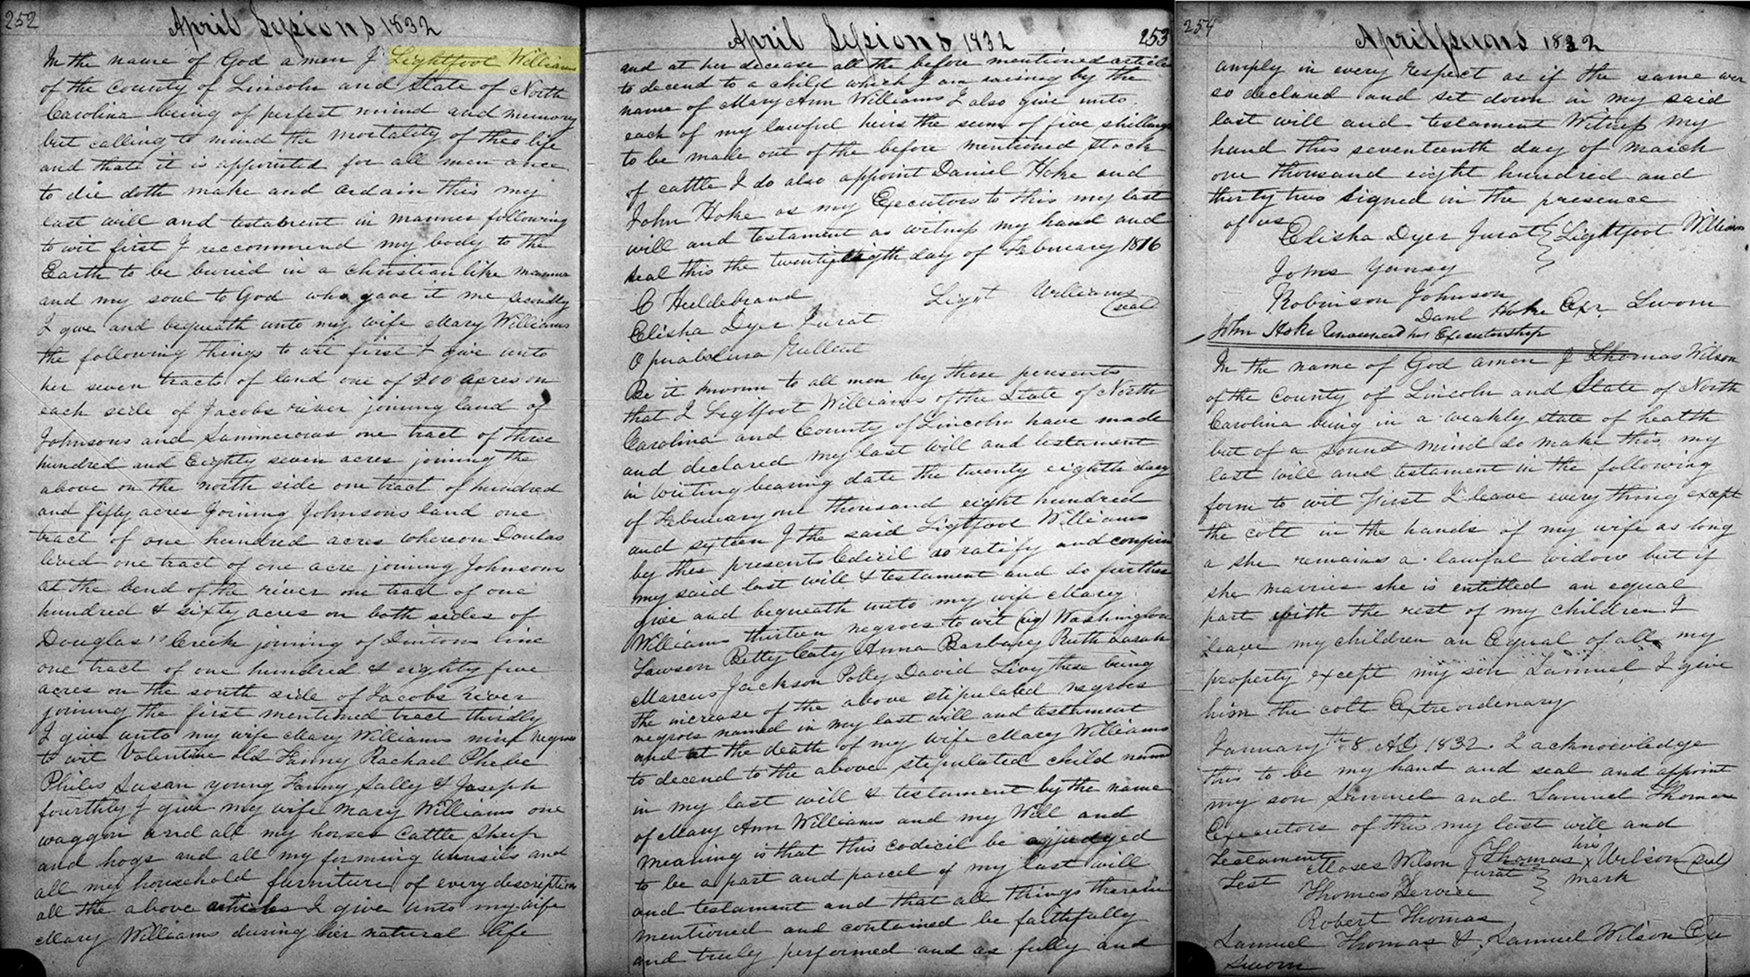 252
April Sessions 1832
In the name of God amen I Lightfoot Williams
of the County of Lincoln and State of North
Carolina being of perfect mind and memory
but calling to mind the mortality of this life
and that it is appointed for all men once
to die doth make and ordain this my
last will and testament in manner following
to wit first I reccommend my body to the
Earth to be buried in a christian like manner
and my soul to God who gave it me secondly
I give and bequeath unto my wife Mary Williams
the following things to wit first I give unto
her seven tracts of land one of 200 acres on
each side of Jacobs river joining land of
Johnsons and Summerows one tract of three
hundred and Eighty seven acres joining the
above on the north side one tract of hundred
and fifty acres joining Johnsons land one
tract of one hundred acres whereon
lived one tract of one acre joining Johnson
at the bend of the river one tract of one
hundred & sixty acres on both sides of
Douglas' Creek joining of line
one tract of one hundred & eighty five
acres on the south side of Jacobs river
joining the first mentioned tract thirdly
I give unto my wife Mary Williams nine negros
to wit Valentine old Fanny Rachael Phebe
Philes Susan young Fanny Sally & Joseph
fourthly I give my wife Mary Williams one
waggon and all my horses cattle sheep
and hogs and all my forming utensils and
all my household furniture of every description
all the above articles I give unto my wife
Mary Williams during her natural life
April Sessions 1832
253
and at her decease all the before mentioned articles
to decend to a child which I am raising by the
name of Mary Ann Williams I also give unto
each of my lawful heirs the sum of five shillings
to be made out of the before mentioned stock
of cattle I do also appoint Daniel Hoke and
John Hoke as my Executors to this my last
will and testament as witness my hand and
seal this the twenty eigth day of February 1816
C Huldebrand Ligt Williams
Elisha Dyer Jurat (seal)
Be it known to all men by these persents
that I Ligtfoot Williams of the State of North
Carolina and County of Lincoln have made
and declared my last will and testament
in writing bearing date the twenty eighth day
of February one thousand eight hundred
and sixteen I the said Ligtfoot Williams
by this presents Codicil do ratify and confirm
my said last will & testament and do further
give and bequeath unto my wife Mary
Williams thirteen negroes to wit (viz) Washington
Lawson Betty Caty Anna Barbary Ruth Sarah
Marcus Jackson Polly David Livy these being
the increase of the above stipulated negroes
negros named in my last will and testament
and at the death of my wife Mary Williams
to decend to the above stipulated child named
in my last will & testament by the name
of Mary Ann Williams and my Will and
meaning is that this codicil be adjudged
to be a part and parcel of my last will
and testament and that all things therein
mentioned and contained be faithfully
and truly performed and as fully and
254
April Sessions 1832
amply in every respect as if the same wer
so declared and set down in my said
last will and testament Witness my
hand this seventeenth day of March
one thousand eight hundred and
thirty two signed in the presence
of us
Elisha Dyer Jurat Lightfoot Williams
John Yancy
Robinson Johnson
Danl Hoke Exr Sworn
John Hoke Renounced his Executorship
In the name of God amen I Thomas Wilson
of the County of Lincoln and State of North
Carolina being in a weakly state of health
but of a sound mind do make this my
last will and testament in the following
form to wit first I leave every thing except
the colt in the hands of my wife as long
a she remains a lawful widow but if
she marries she is entitled an equal
part with the rest of my children I
leave my children an Equal of all my
property except my son Samuel I give
him the colt Extreordenary
January 8 AD 1832. I acknowledge
this to be my hand and seal and appoint
my son Samuel and Samuel Thomas
Executors of this my last will and
Testament Moses Wilson Thomas his x Wilson (seal)
Test Jurat mark
Thomas
Robert Thomas
Samuel Thomas & Samuel Wilson Exr
sworn